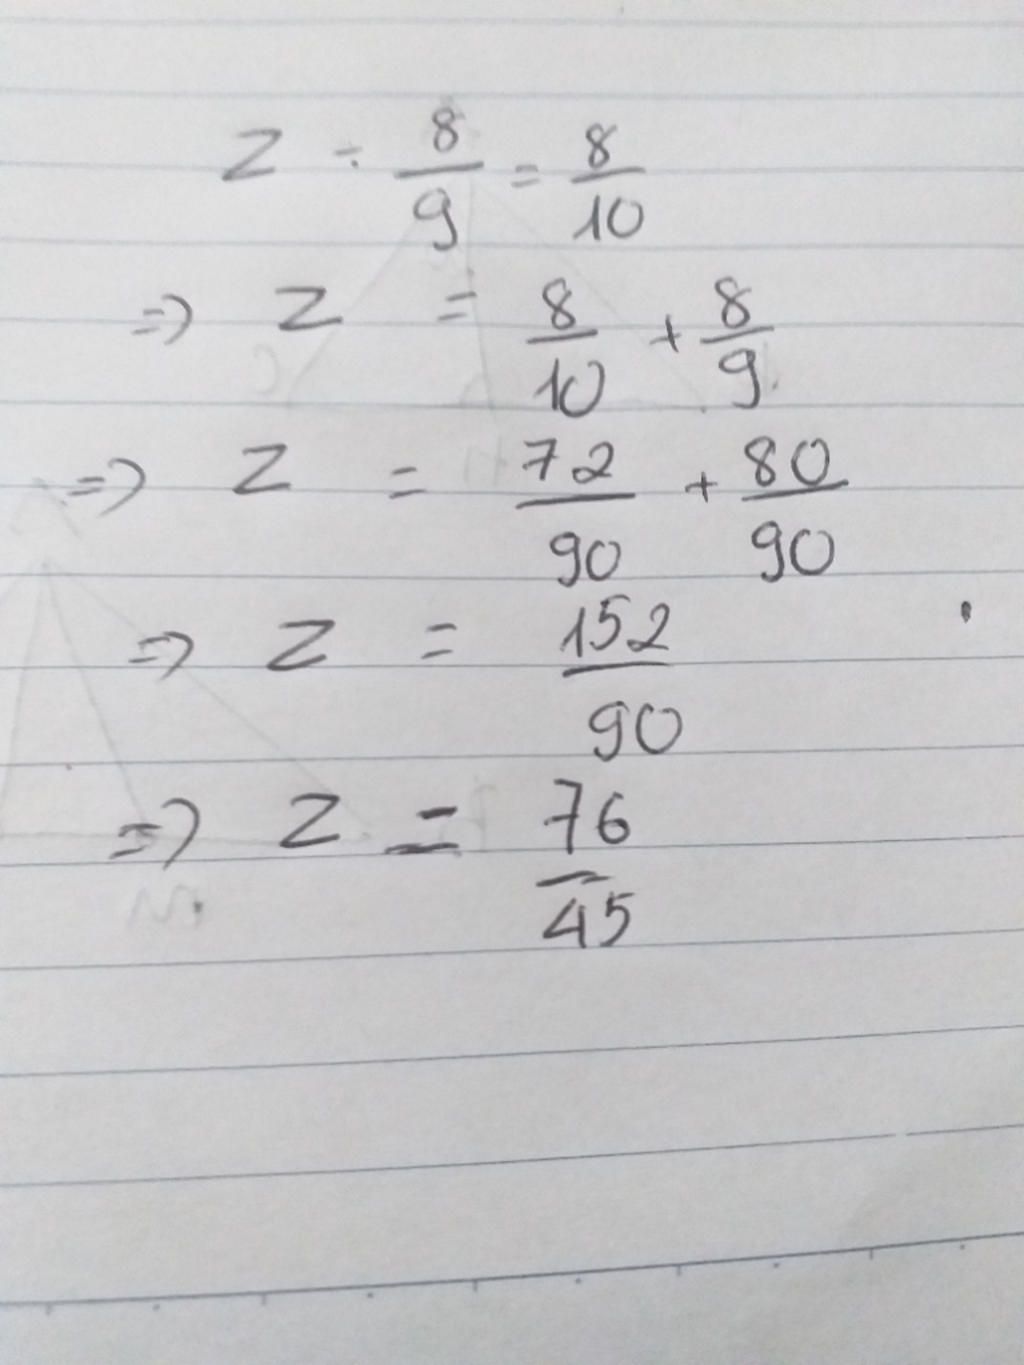 z ÷ 8/9 = 8/10
=> z = 8/10 + 8/9
=> z = 72/90 + 80/90
=> z = 152/90
=> z = 76/45